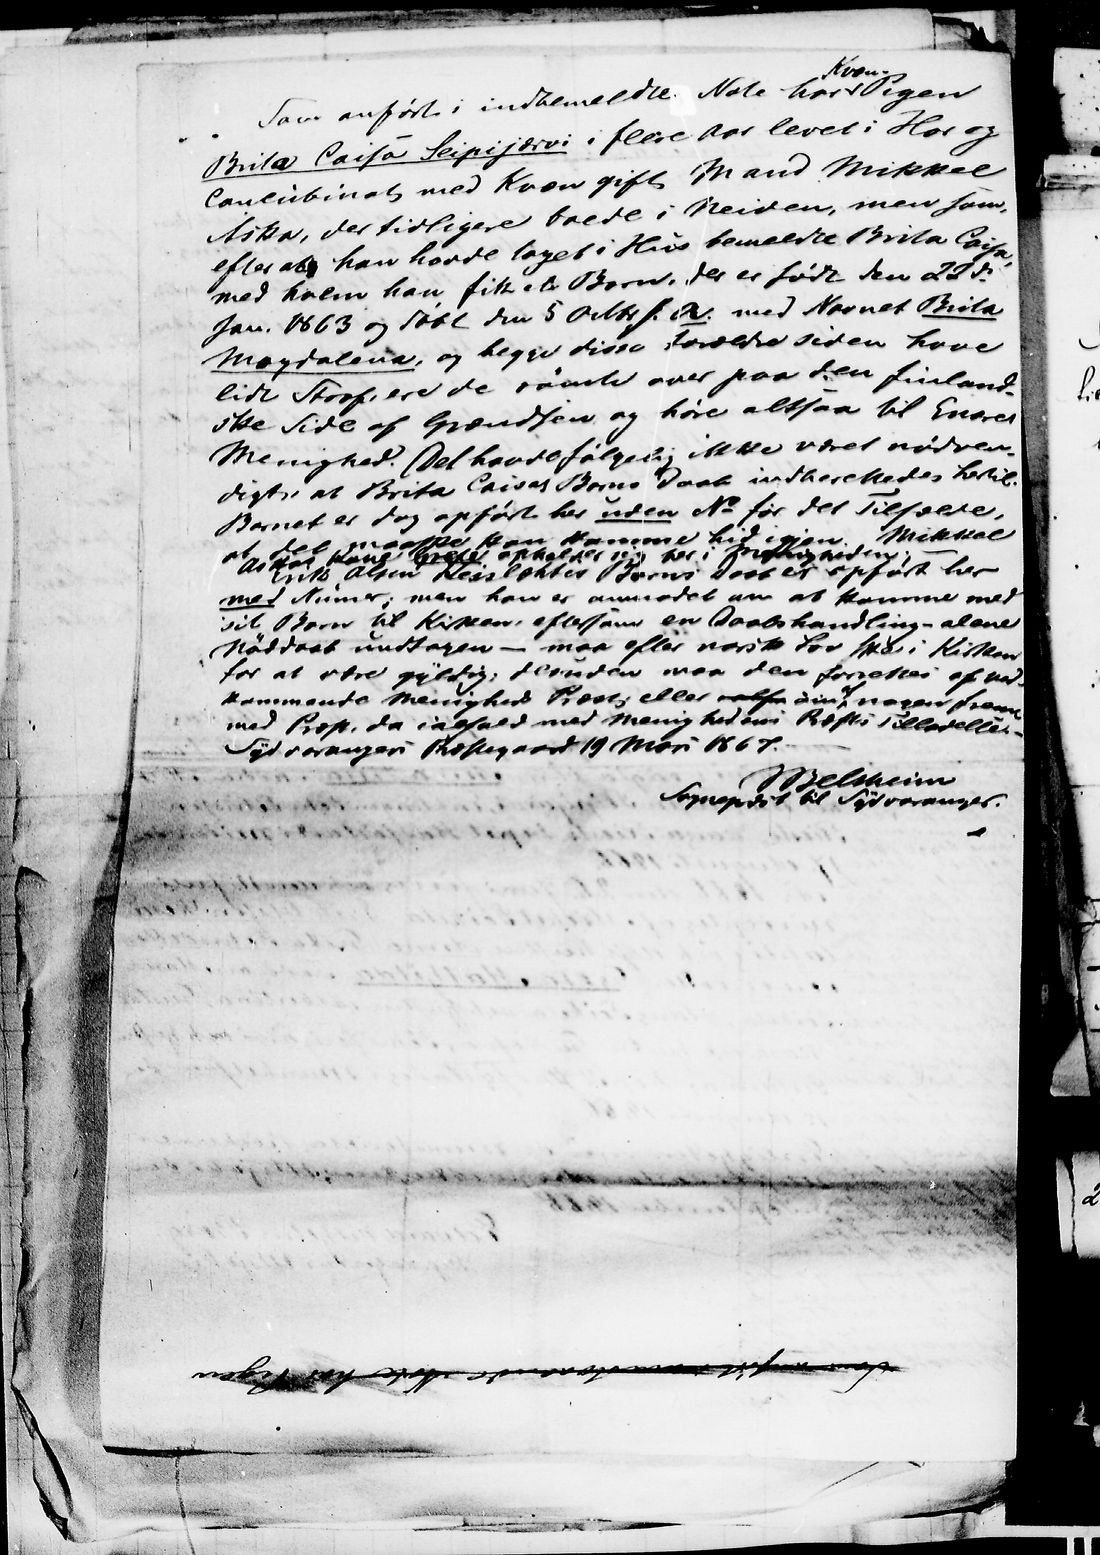 Kvæn-
Som anført i indbemeldte Note har Pigen
Brita Caisa Seipijærvi i flere Aar levet i Hor og
Concubinat med Kvæn gift Mand Mikkel
Aska, der tidligere boede i Neiden, men som,
efter at han havde taget i Hus bemeldte Brita Caisa,
med hvem han fik et Barn, der er født den 22de
Jan. 1863 og døbt den 5 Octbr s. A. med Navnet Brita
Magdalena, og begge disse Forældre siden have
lidt Straf, ere de rømte over paa den finland-
ske Side af Grændsen og høre altsaa til Enares
Menighed. Det havde følgelig ikke været nødven-
digt, at Brita Caisas Barns Daab indberettedes hertil.
Barnet er dog opført her uden No for det Tilfælde,
at det maaske kan komme hid igjen. Mikkel
Askas Kone Grete opholder sig her i Menigheden. -
Erik Olsen Barns Daab er opført her
med Numer; men han er anmodet om at komme med
sit Barn til Kirken, eftersom en Daabshandling - alene
Nøddaab undtagen - maa efter norsk Lov skee i Kirken
for at være gyldig; desuden maa den forrettes af ved-
kommende Menigheds Præst, eller af nogen frem-
med Præst, da ialfald med Menighedens Præsts Tilladelse. -
Sydvarangers Præstegaard 19 Mars 1867. -
Belsheim
Sognepræst til Sydvaranger.
Som anført i Note har Pigen